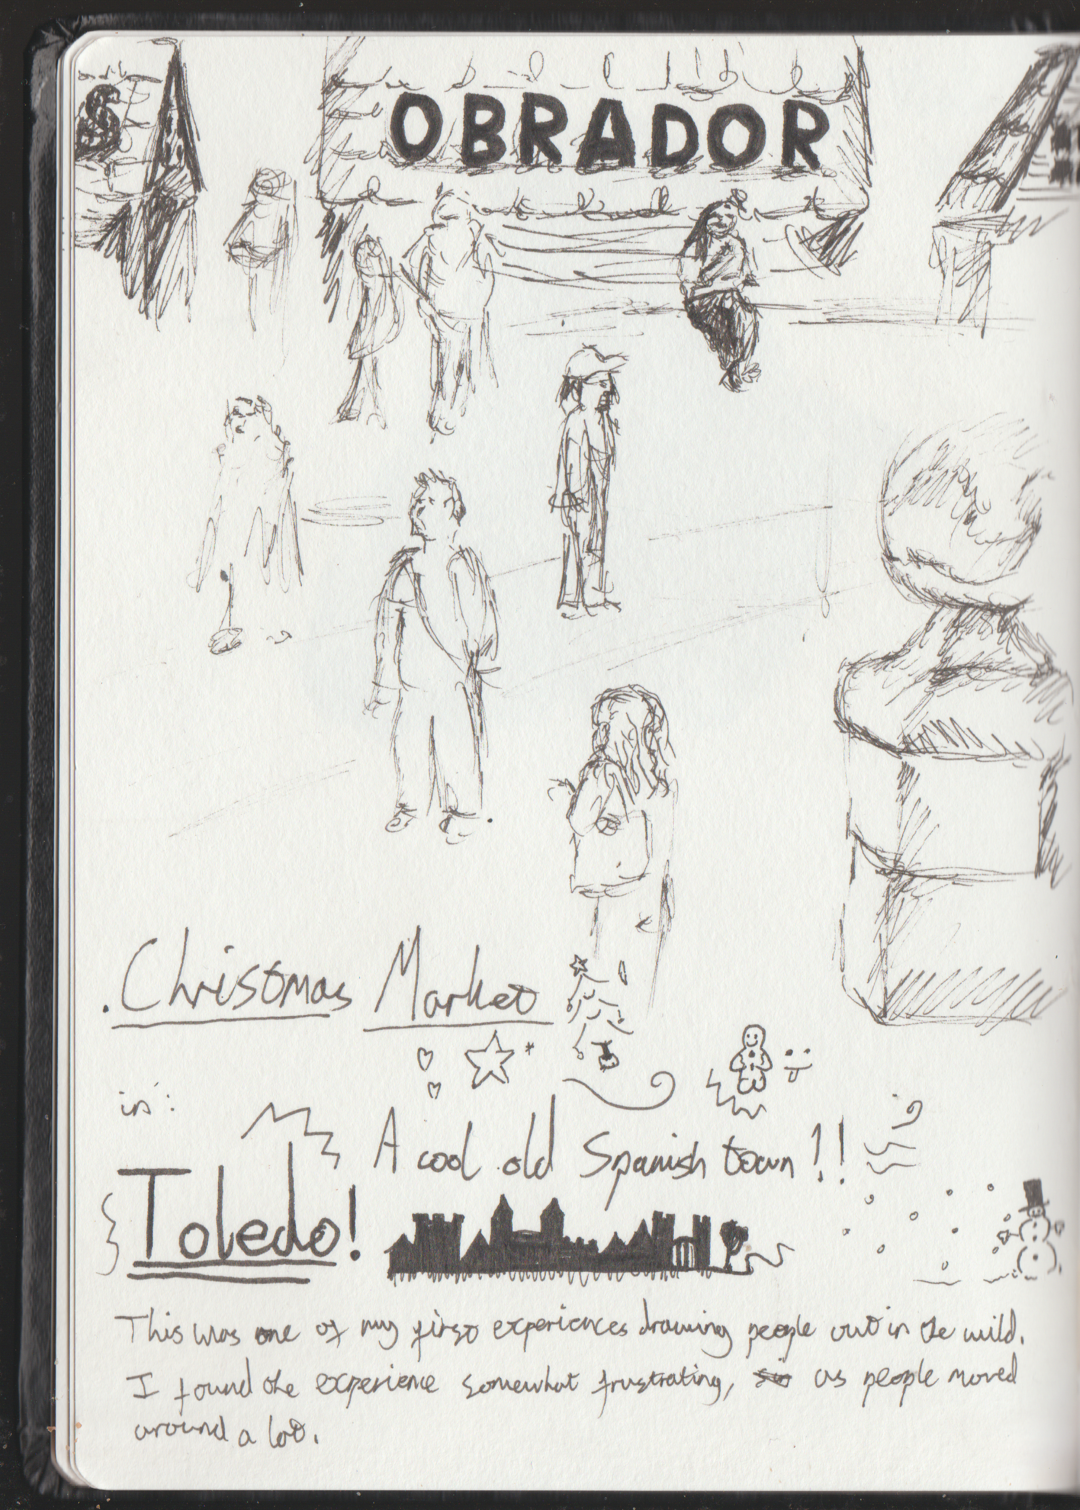 S
OBRADOR
Christmas Market
in:
A cool old Spanish town!!
Toledo!
This was one of my first experiences drawing people out in the wild.
I found the experience somewhat frustrating, as people moved
around a lot.